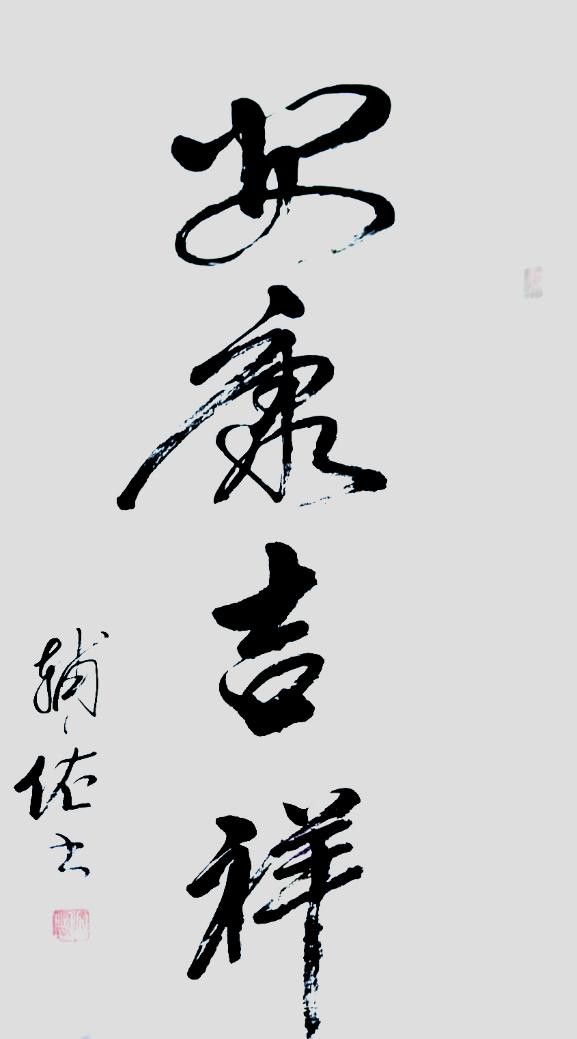 安康吉祥
辅佑书